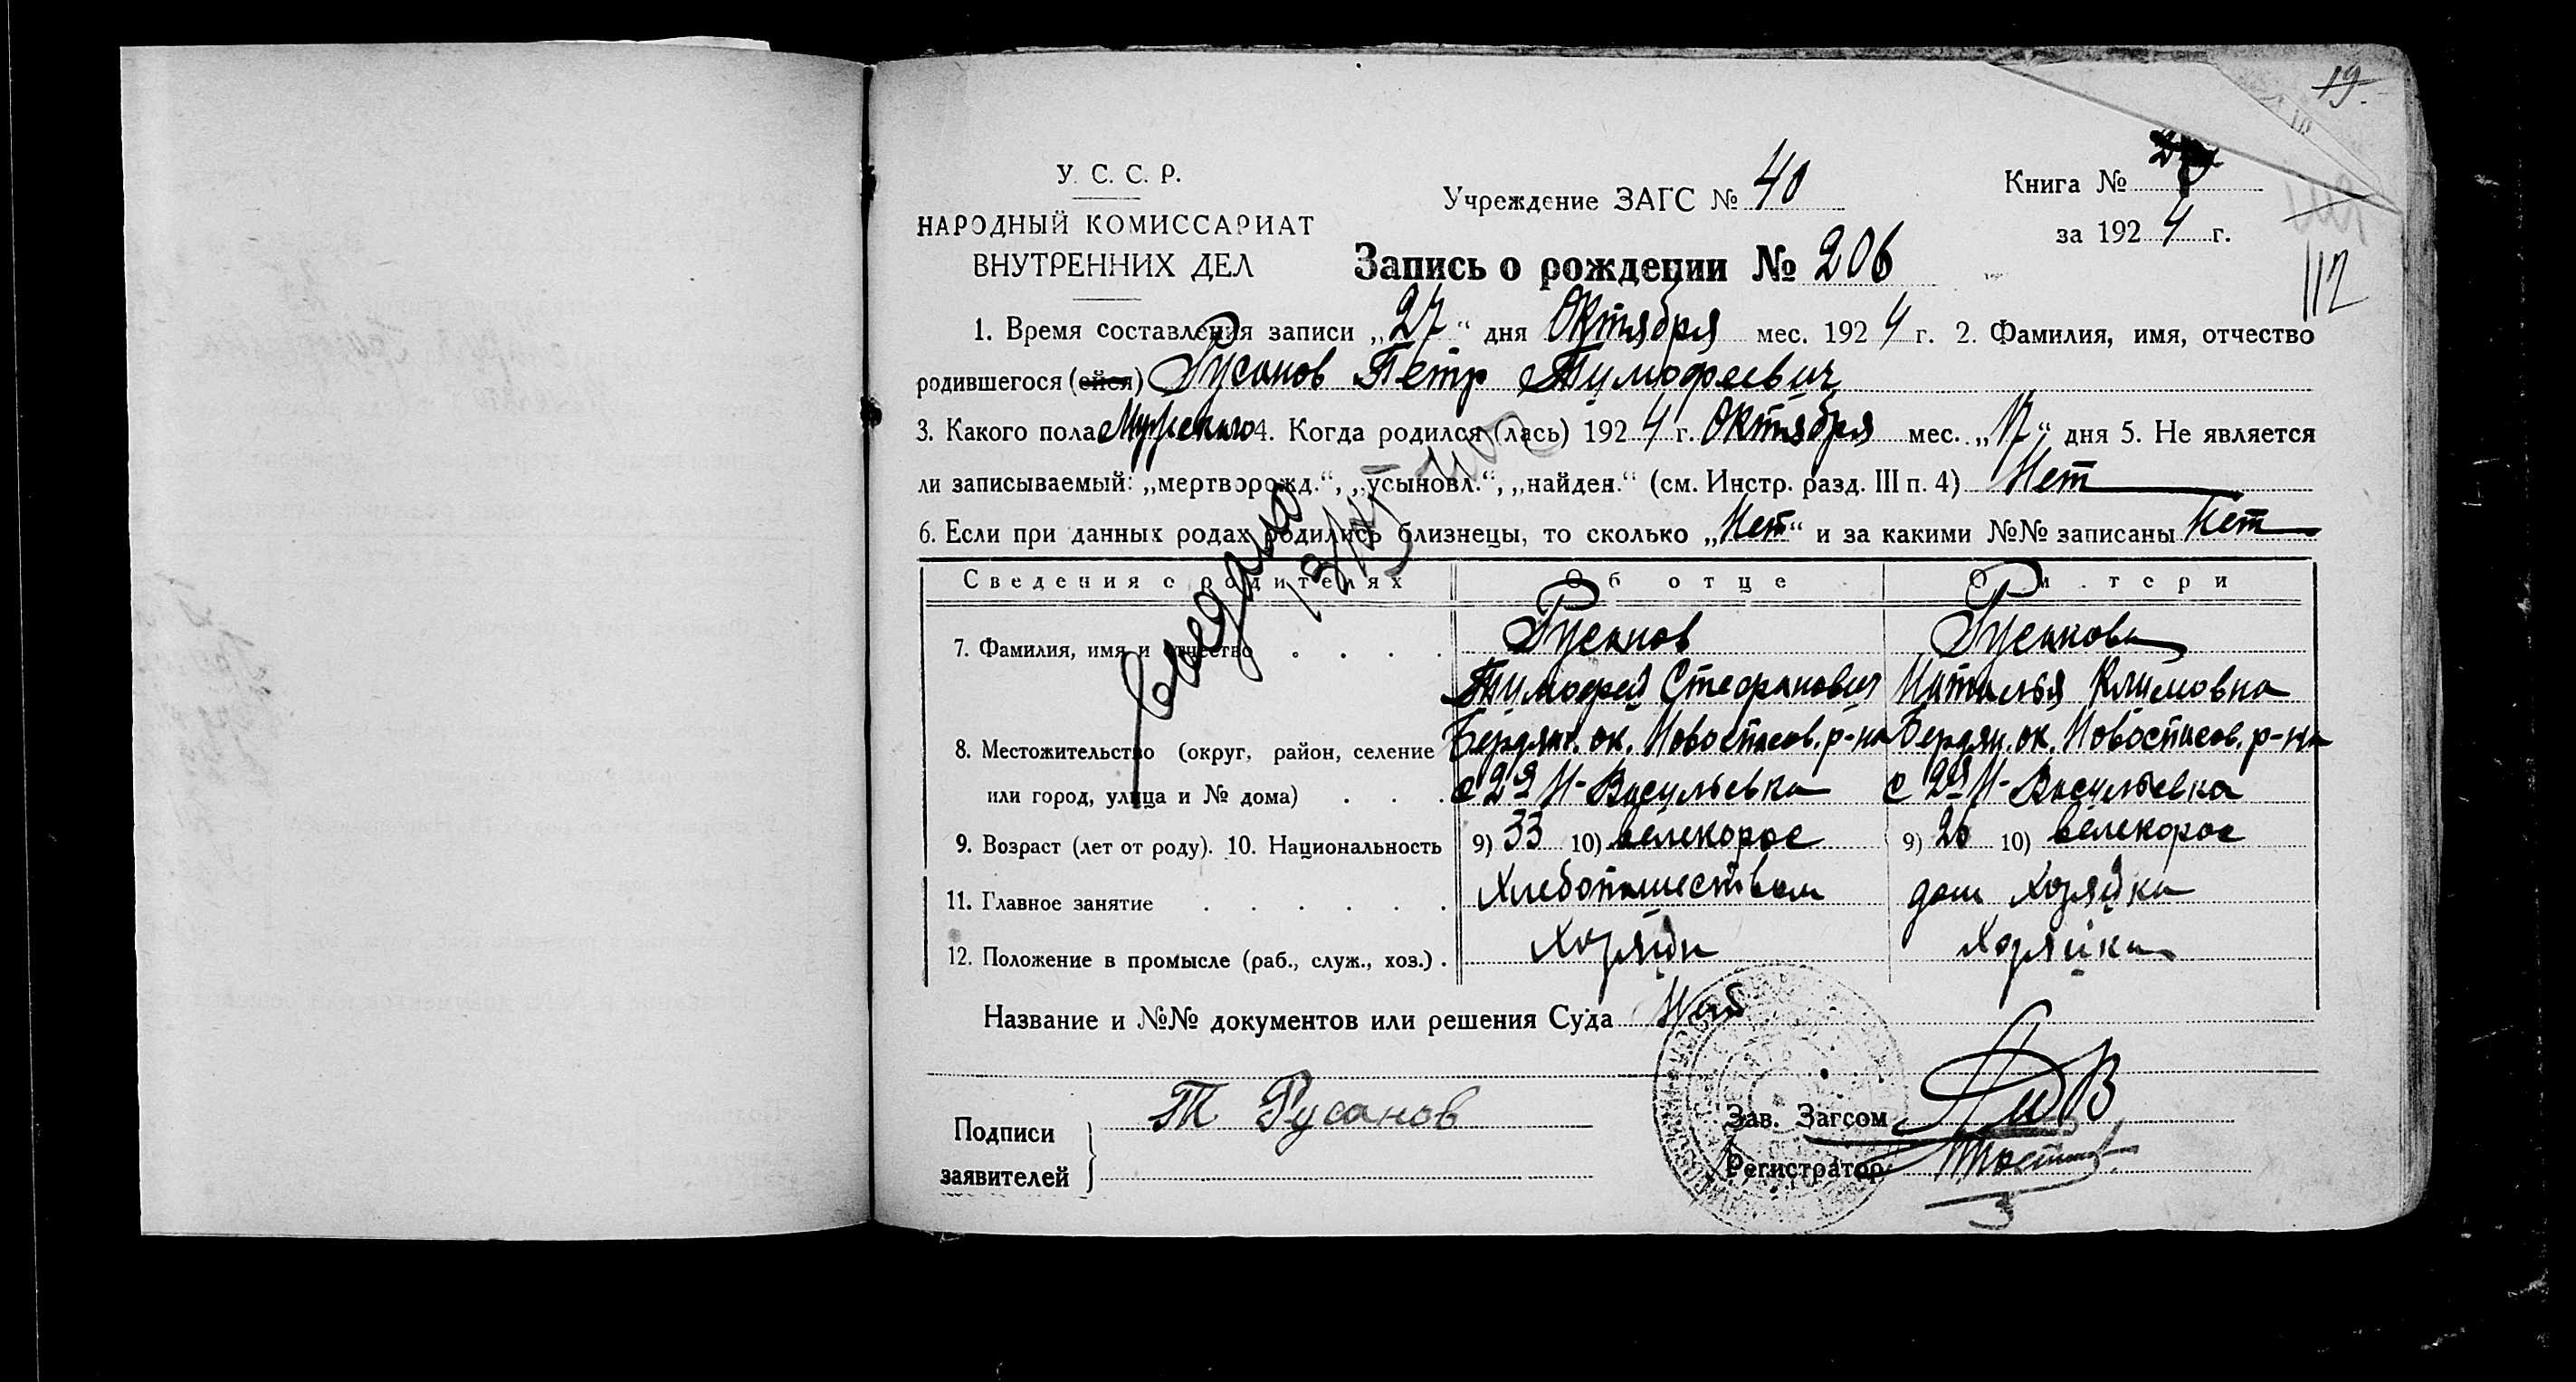 19.
У. С. С. Р.
НАРОДНЫЙ КОМИССАРИАТ
ВНУТРЕННИХ ДЕЛ
Учреждение ЗАГС № 40
Книга №
за 1924 г.
112
Запись о рождении № 206
1. Время составления записи „27“ дня Октября мес. 1924 г. 2. Фамилия, имя, отчество
родившегося (ейся) Русанов Петр Тимофеевич
3. Какого пола Мужского 4. Когда родился (лась) 1924 г. Октября мес. „17“ дня 5. Не является
ли записываемый: „мертворожд.“, „усыновл.“, „найден.“ (см. Инстр. разд. III п. 4) Нет
6. Если при данных родах родились близнецы, то сколько „Нет“ и за какими №№ записаны Нет
Сведения о родителях Об отце О м тери
7. Фамилия, имя и отчество Русанов Русанова
Тимофей Стефанович Наталья Климовна
8. Местожительство (округ, район, селение Бердян. ок. Новоспасов. р-на Бердян. ок. Новоспасов. р-на
или город, улица и № дома) с 2я Н-Васильевка с 2я Н-Васильевка
9. Возраст (лет от роду). 10. Национальность 9) 33 10) велекорос 9) 20 10) велекорос
11. Главное занятие Хлебопашеством дом хозяйка
12. Положение в промысле (раб., служ., хоз.) Хозяин Хозяйка
Название и №№ документов или решения Суда Нет
Подписи
заявителей
Т Русанов
Зав. Загсом
Регистратор